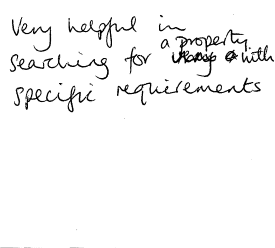 Very helpful in
searching for a property with
specific requirements